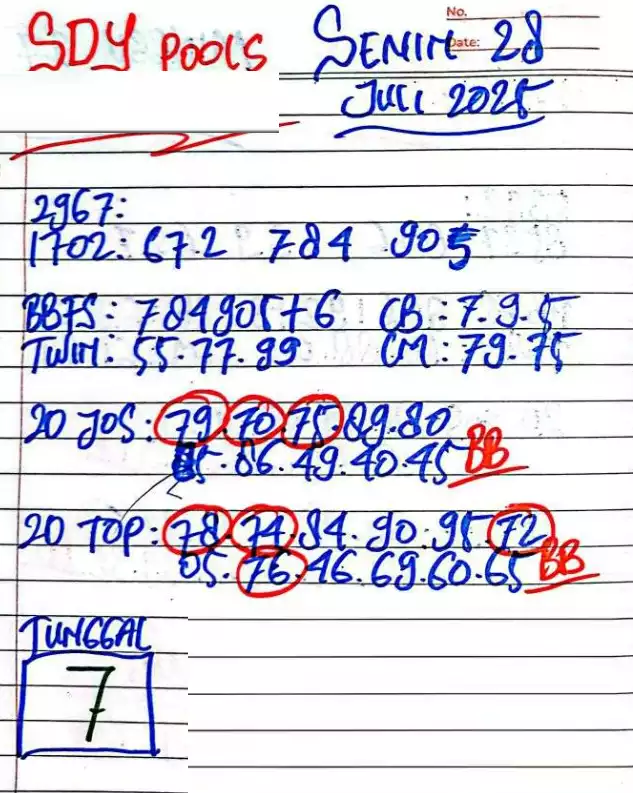 SDY POOLS
No.
Date:
SENIN 28
JULI 2025
2967:
1702: 672 784 905
BBFS: 784905+6 CB: 7.9.5
TWIN: 55.77.99 CM: 79.75
20 JOS: 79.70.75.89.80
85.86.49.40.45 BB
20 TOP: 78.74.84.90.95.72
05.76.46.69.60.65 BB
TUNGGAL
7